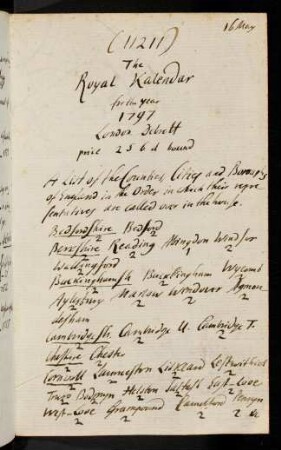 16 May
(11211)
The
Royal Kalendar
for the year
1797
London Debrett
price 2 s 6 d bound
A List of the Counties, Cities and Boroughs
of England in the Order in which their repre
sentatives are called over in the house.
Bedfordshire Bedford
Berkshire Reading Abingdon Windsor
Wallingford
Buckinghamsh Buckingham Wycomb
Aylesbury Marlow Wendover Agmon
desham
Cambridgesh. Cambridge U. Cambridge T.
Cheshire Chester
Cornwall Launceston Liskeard Lestwithiel
Truro Bodmyn Helston Saltash East-Looe
West-Looe Grampound Camelford Penryn
2 2 2 2 &